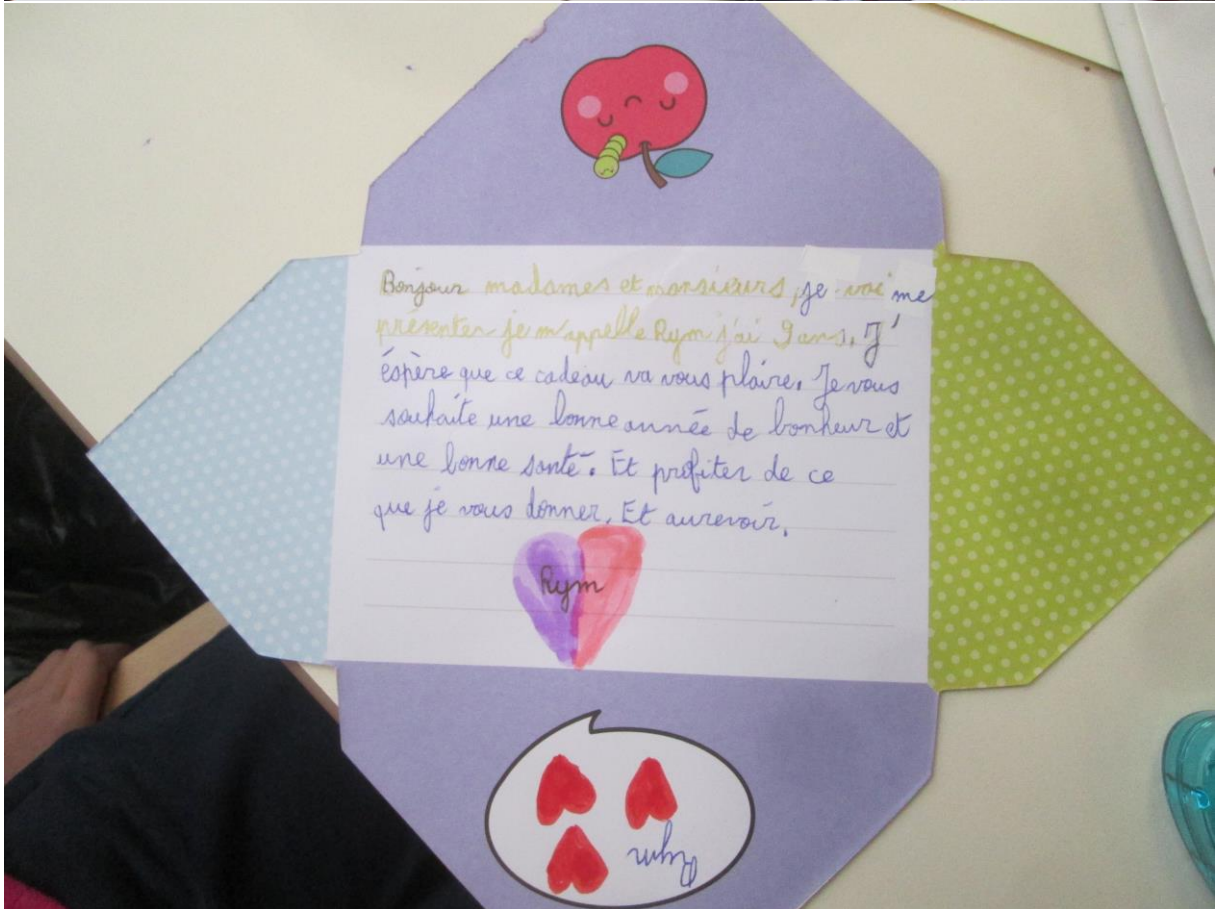 Bonjour madames et monsieurs, je vai me
présenter je m'appelle Rym j'ai 9 ans. J'
éspère que ce cadeau va vous plaire. Je vous
souhaite une bonne année de bonheur et
une bonne santé. Et profiter de ce
que je vous donner. Et aurevoir.
Rym
Rym